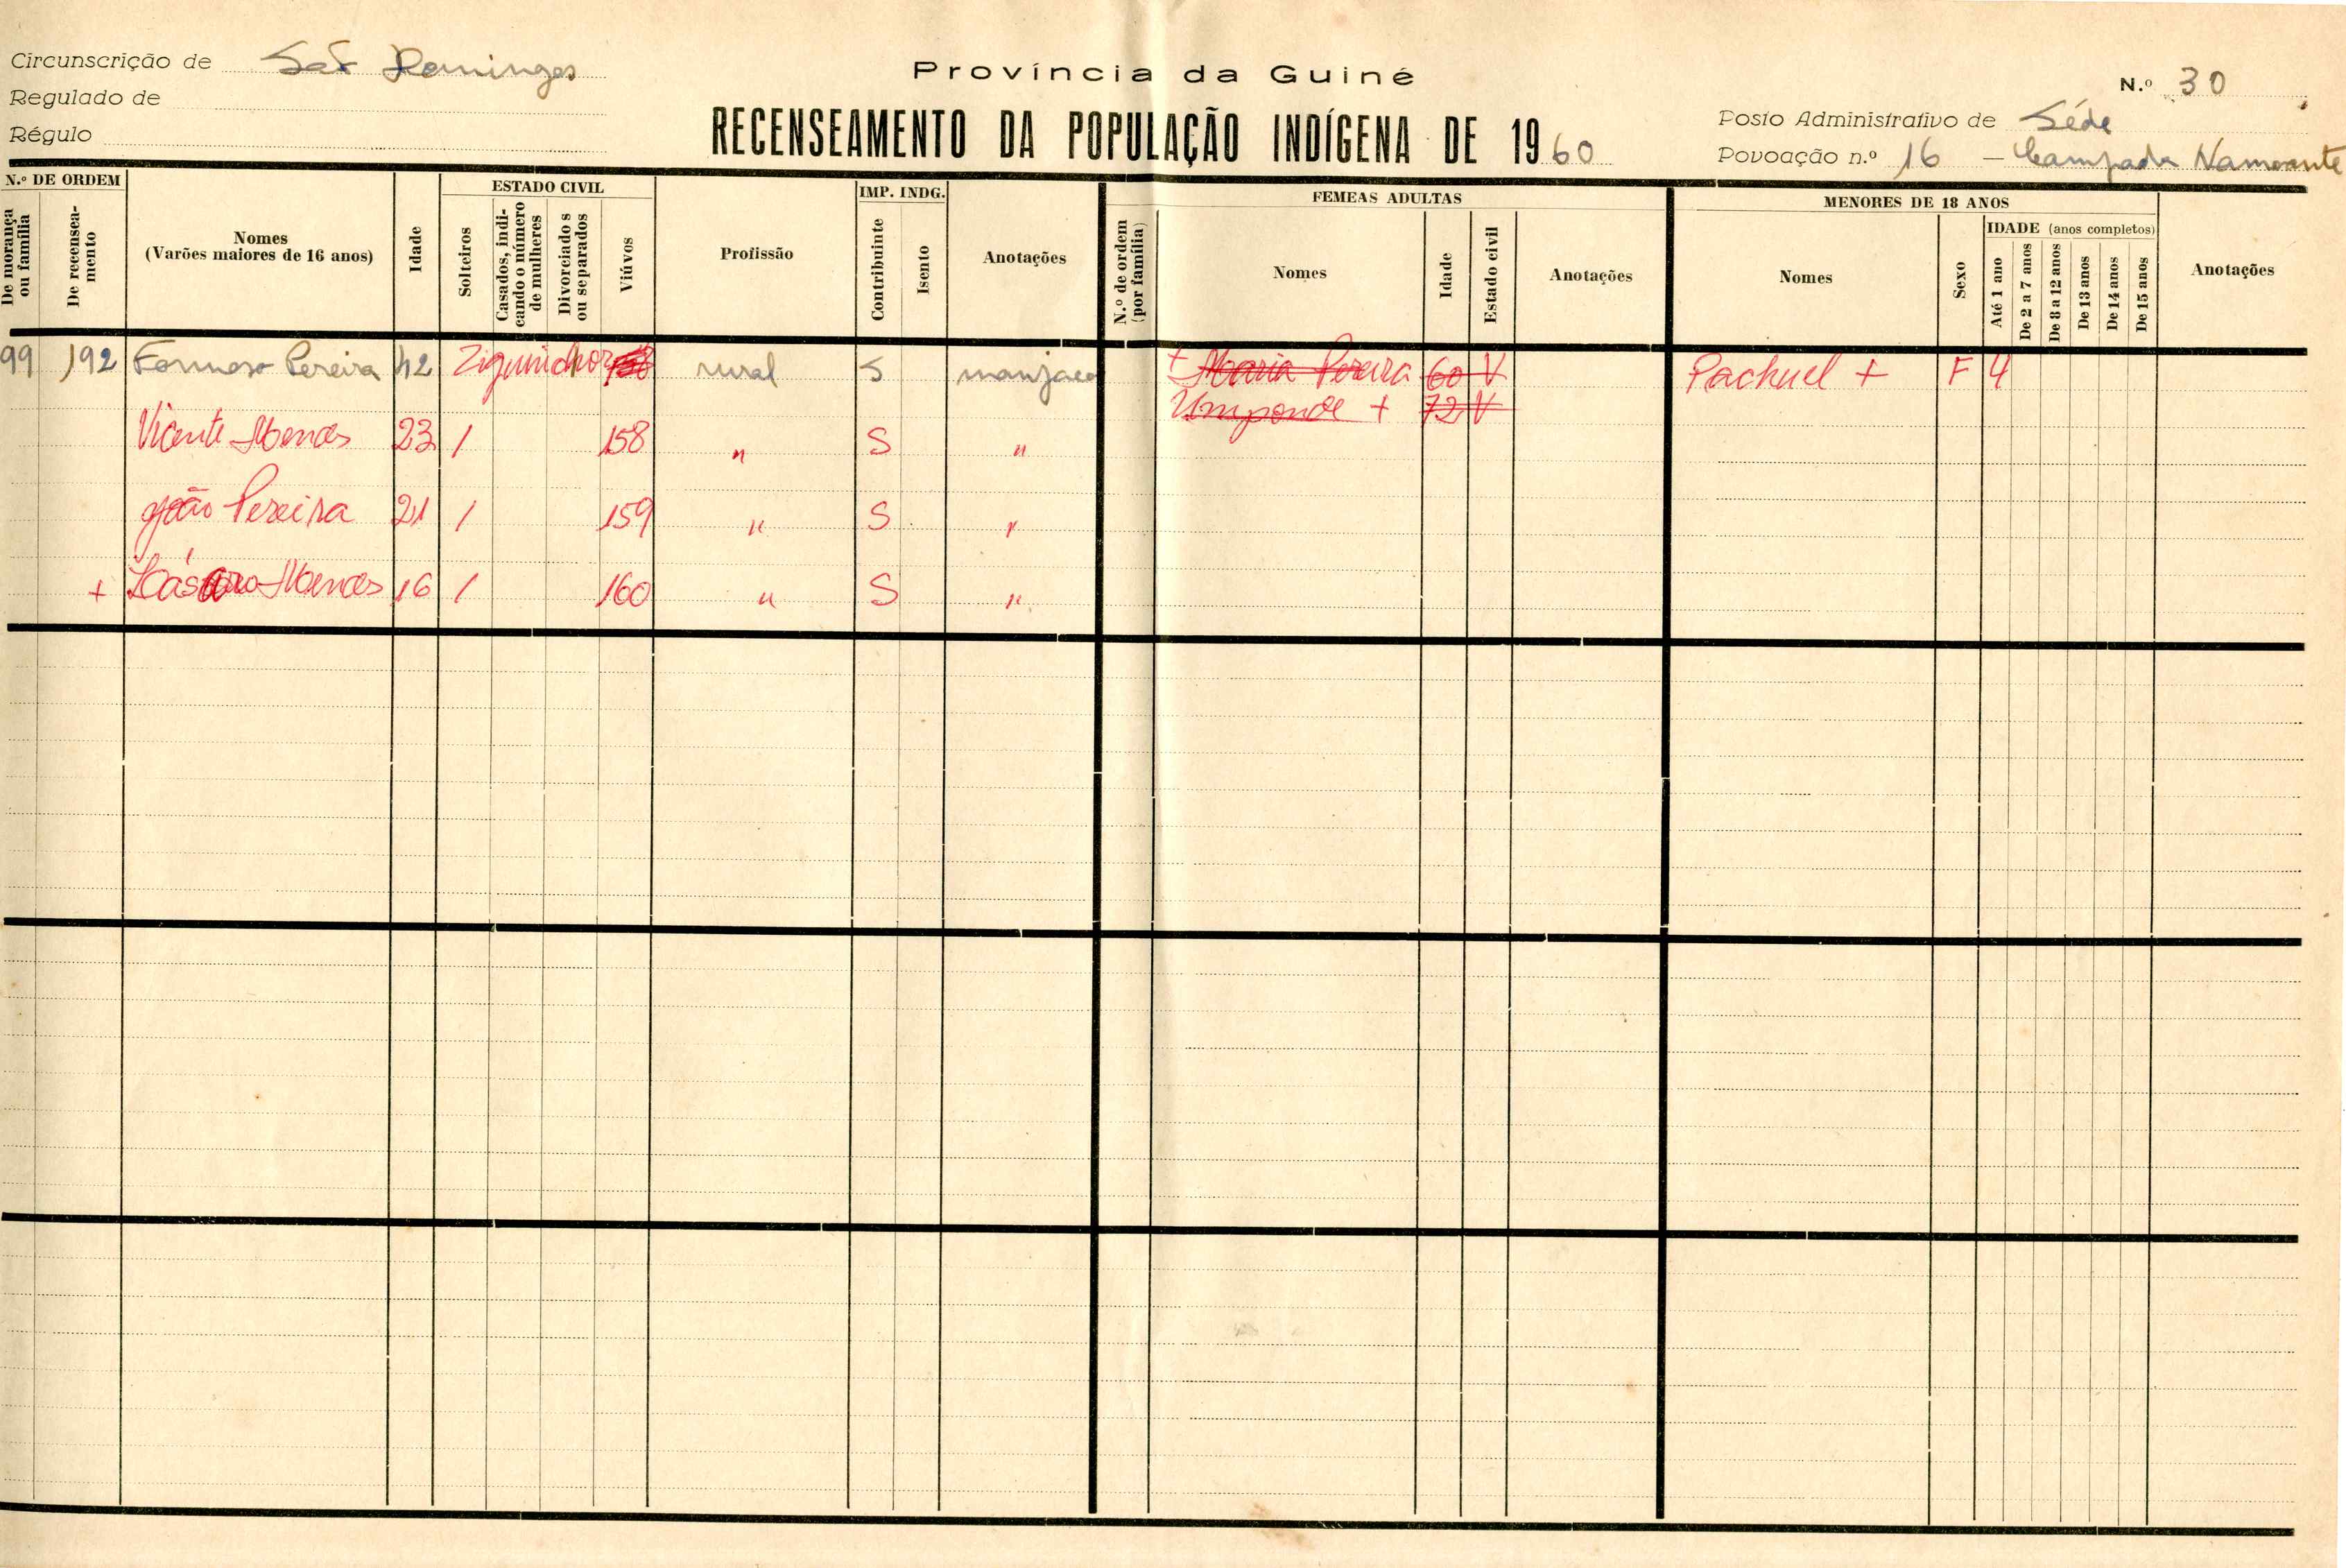 Circunscrição de São Domingos
Regulado de
Régulo
Província da Guiné
RECENSEAMENTO DA POPULAÇÃO INDÍGENA DE 1960
N.º 30
Posto Administrativo de Séde
Povoação n.º 16 — Campada Namoante
N.º DE ORDEM
De morança ou família
De recenseamento
Nomes
(Varões maiores de 16 anos)
Idade
ESTADO CIVIL
Solteiros
Casados, indicando o número de mulheres
Divorciados ou separados
Viúvos
Profissão
IMP. INDG.
Contribuinte
Isento
Anotações
FEMEAS ADULTAS
N.º de ordem (por família)
Nomes
Idade
Estado civil
Anotações
MENORES DE 18 ANOS
Nomes
Sexo
IDADE (anos completos)
Até 1 ano
De 2 a 7 anos
De 8 a 12 anos
De 13 anos
De 14 anos
De 15 anos
Anotações
99 192 Formoso Pereira 42 Ziguinchor rural S manjaco + Maria Pereira 60 V Pachuel + F 4
Umponde + 72 V
Vicente Mendes 23 / 158 " S "
João Pereira 21 / 159 " S "
+ Lásaro Mendes 16 / 160 " S "